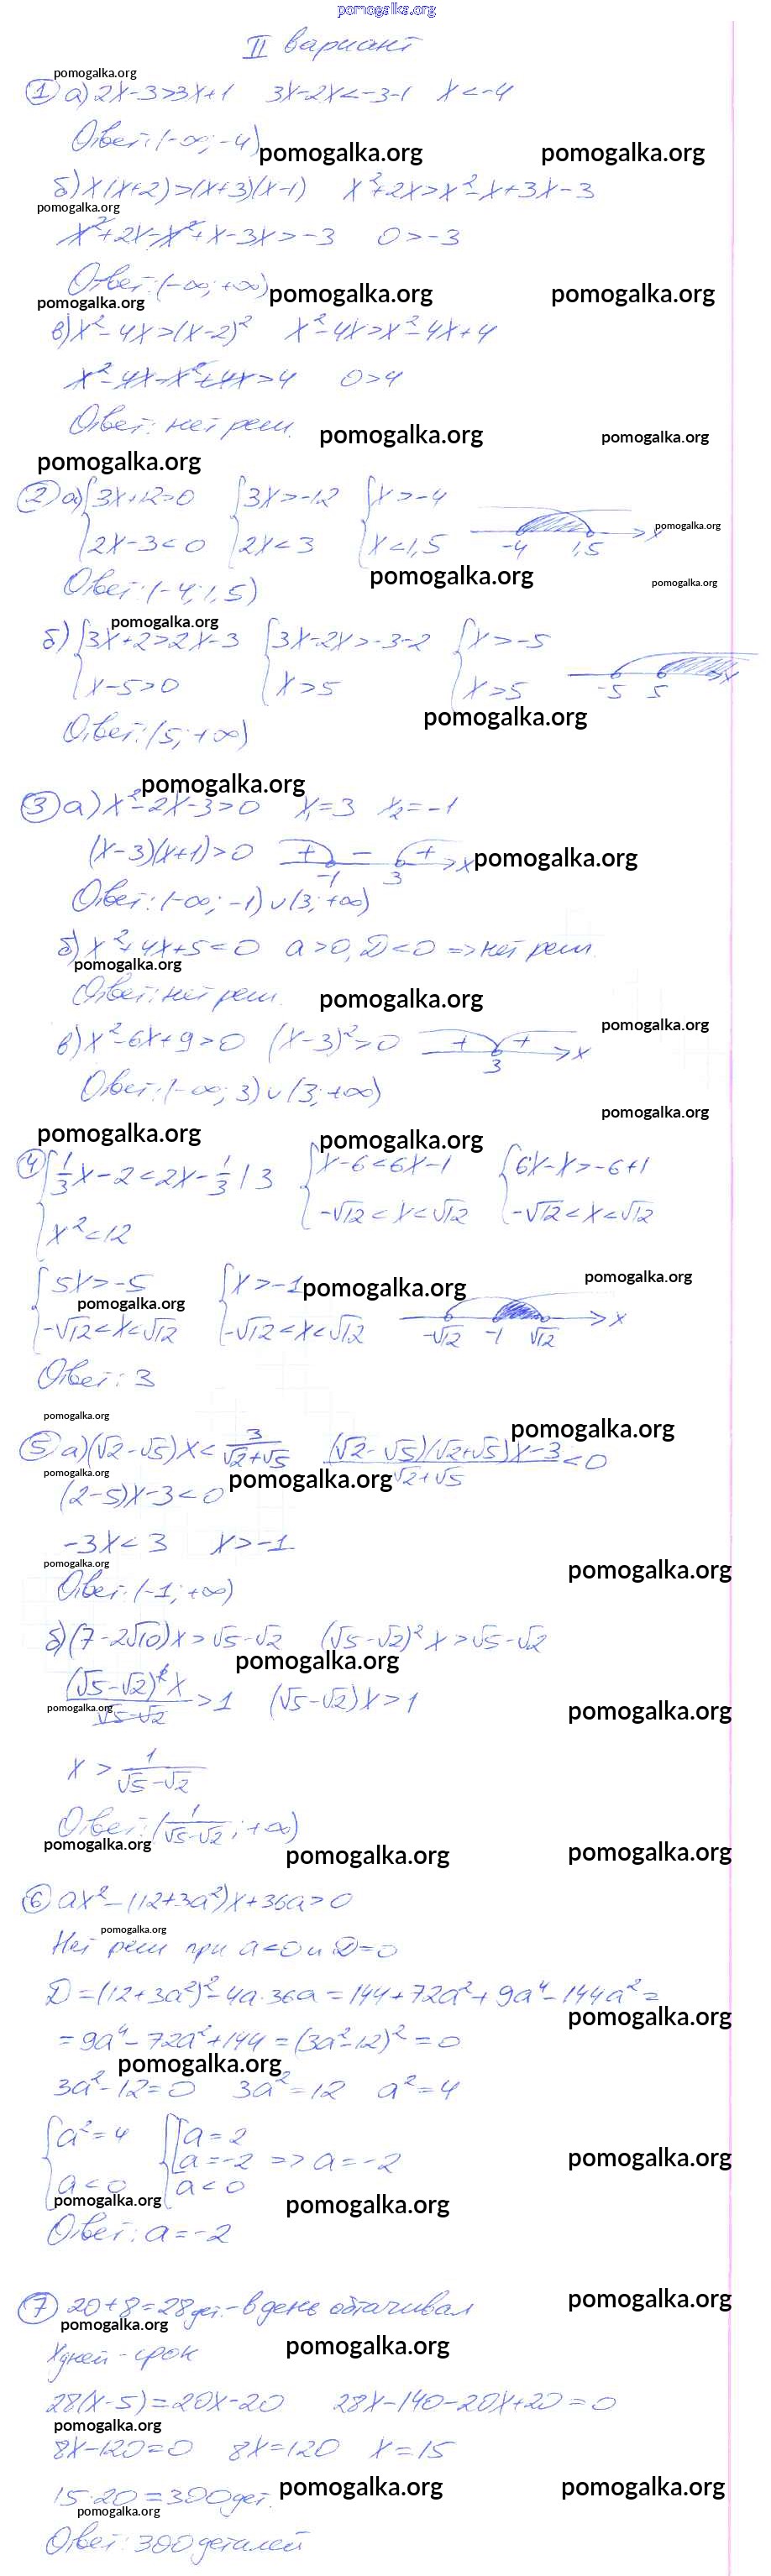 pomogalka.org
II вариант
pomogalka.org
① а) 2x-3>3x+1 3x-2x<-3-1 x<-4
Ответ: (-∞; -4)
pomogalka.org pomogalka.org
б) x(x+2)>(x+3)(x-1) x²+2x>x²-x+3x-3
pomogalka.org
x²+2x-x²+x-3x>-3 0>-3
Ответ: (-∞; +∞)
pomogalka.org pomogalka.org
pomogalka.org
в) x²-4x>(x-2)² x²-4x>x²-4x+4
x²-4x-x²+4x>4 0>4
Ответ: нет реш.
pomogalka.org pomogalka.org
pomogalka.org
② а) {3x+12>0 {3x>-12 {x>-4
{2x-3<0 {2x<3 {x<1,5 -4 1,5 x
pomogalka.org
Ответ: (-4; 1,5)
pomogalka.org pomogalka.org
pomogalka.org
б) {3x+2>2x-3 {3x-2x>-3-2 {x>-5
{x-5>0 {x>5 {x>5 -5 5 x
pomogalka.org
Ответ: (5; +∞)
pomogalka.org
③ а) x²-2x-3>0 x₁=3 x₂=-1
(x-3)(x+1)>0 + - + -1 3 x
pomogalka.org
Ответ: (-∞; -1)∪(3; +∞)
б) x²+4x+5<0 a>0, D<0 => нет реш.
pomogalka.org
Ответ: нет реш.
pomogalka.org pomogalka.org
в) x²-6x+9>0 (x-3)²>0 + + 3 x
Ответ: (-∞; 3)∪(3; +∞)
pomogalka.org
pomogalka.org pomogalka.org
④ {1/3x-2<2x-1/3 | 3 {x-6<6x-1 {6x-x>-6+1
{x²<12 {-√12<x<√12 {-√12<x<√12
{5x>-5 {x>-1
pomogalka.org pomogalka.org
pomogalka.org
{-√12<x<√12 {-√12<x<√12 -√12 -1 √12 x
Ответ: 3
pomogalka.org
pomogalka.org
⑤ а) (√2-√5)x<3/(√2+√5) ((√2-√5)(√2+√5)x-3)/(√2+√5)<0
pomogalka.org pomogalka.org
(2-5)x-3<0
-3x<3 x>-1
pomogalka.org pomogalka.org
Ответ: (-1; +∞)
б) (7-2√10)x>√5-√2 (√5-√2)²x>√5-√2
pomogalka.org
(√5-√2)²x/(√5-√2)>1 (√5-√2)x>1
pomogalka.org pomogalka.org
x>1/(√5-√2)
Ответ: (1/(√5-√2); +∞)
pomogalka.org pomogalka.org pomogalka.org
⑥ ax²-(12+3a²)x+36a>0
pomogalka.org
Нет реш при a<0 и D=0
D=(12+3a²)²-4a·36a=144+72a²+9a⁴-144a²=
pomogalka.org
=9a⁴-72a²+144=(3a²-12)²=0
pomogalka.org
3a²-12=0 3a²=12 a²=4
{a²=4 {[a=2
[a=-2 => a=-2
pomogalka.org
{a<0 {a<0
pomogalka.org pomogalka.org
Ответ: a=-2
pomogalka.org
⑦ 20+8=28 дет. - в день обтачивал
pomogalka.org pomogalka.org
x дней - срок
28(x-5)=20x-20 28x-140-20x+20=0
pomogalka.org
8x-120=0 8x=120 x=15
15·20=300 дет.
pomogalka.org pomogalka.org
pomogalka.org
Ответ: 300 деталей